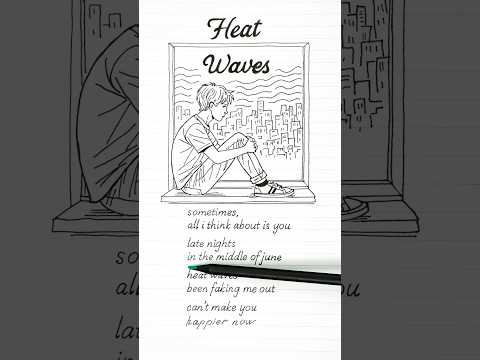 Heat
Waves
sometimes,
all i think about is you
late nights
in the middle of june
heat waves
been faking me out
can't make you
happier now
so
all
late
in t